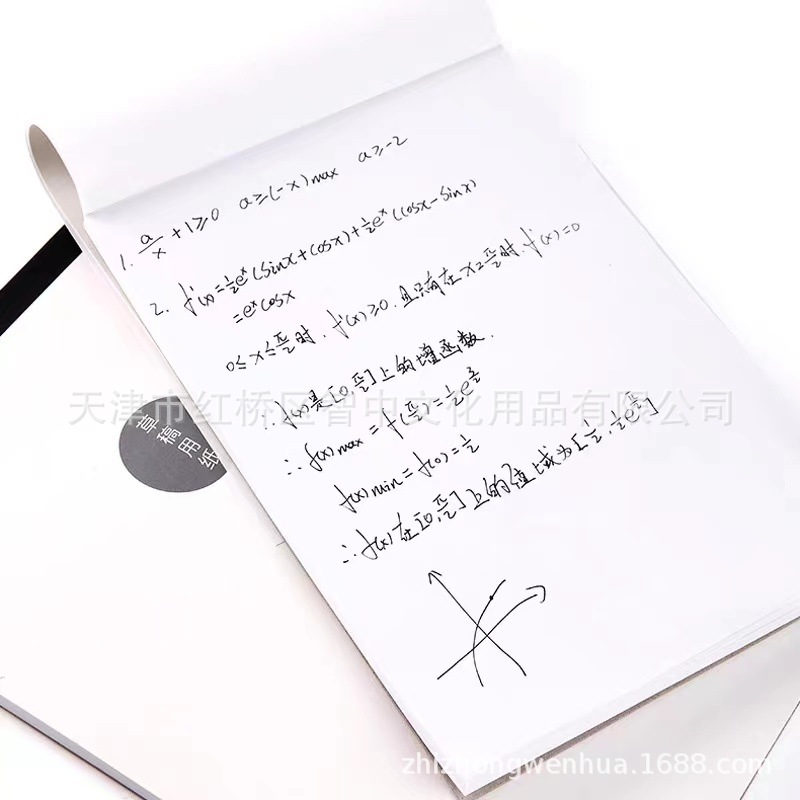 1. a/x + 1 ≥ 0  a ≥ (-x)max  a ≥ -2
2. f'(x) = ½eˣ(sinx + cosx) + ½eˣ(cosx - sinx)
= eˣcosx
0 ≤ x ≤ π/2时, f'(x) ≥ 0, 且只有在x = π/2时, f'(x) = 0
∴ f(x)是[0, π/2]上的增函数.
∴ f(x)max = f(π/2) = ½e^(π/2)
f(x)min = f(0) = ½
∴ f(x)在[0, π/2]上的值域为[½, ½e^(π/2)]
草稿用纸
天津市红桥区智中文化用品有限公司
zhizhongwenhua.1688.com